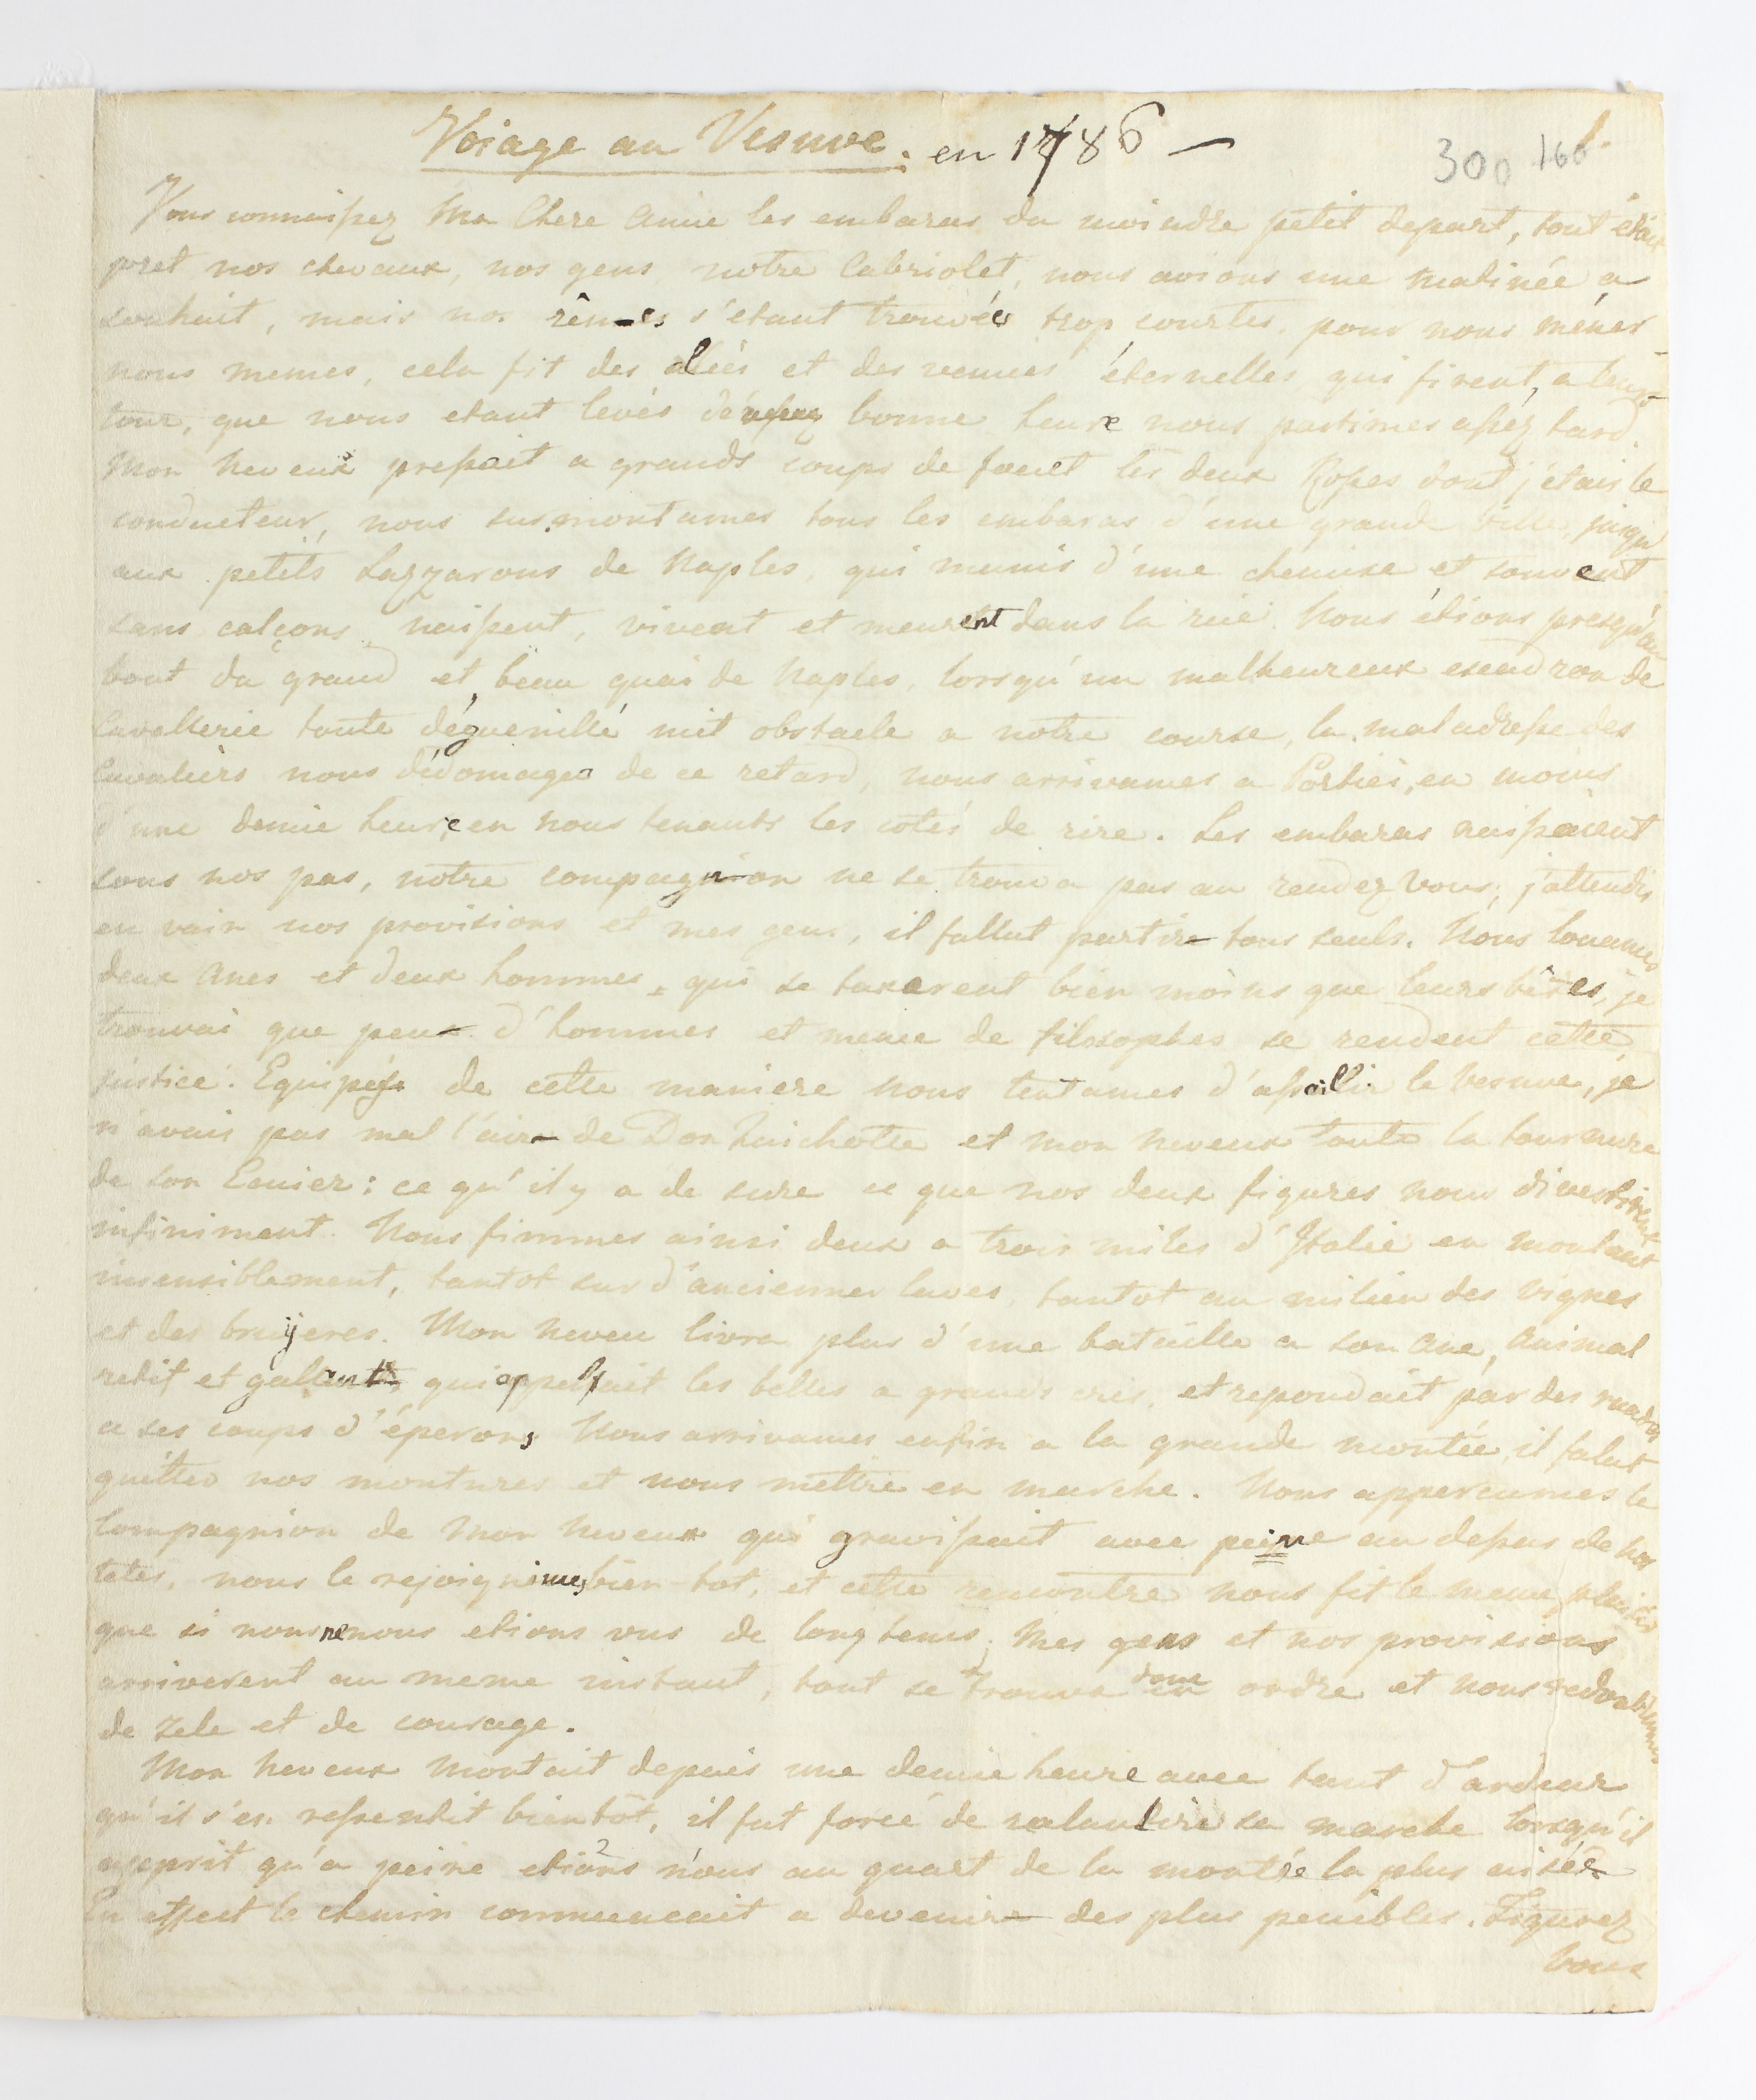 Voiage au Vesuve. en 1786 —
300 166 1.
Vous connaissez Ma Chere Amie les embaras du moindre petit depart, tout était
pret nos chevaux, nos gens notre Cabriolet, nous avions une Matinée a
souhait, mais nos rênes s'étant trouvés trop courtes, pour nous mener
nous memes, cela fit des alées et des venues éternelles qui firent, a leur
tour, que nous etant levés de bonne heure nous partimes assez tard.
Mon neveux pressait a grands coups de fouet les deux Rosses dont j'étais le
conducteur, nous surmontames tous les embaras d'une grande ville, jusqu'
aux petits Lazzarons de Naples, qui munis d'une chemise et souvent
sans calçons naissent, vivent et meurent dans la rue. Nous étions presqu'au
bout du grand et beau quai de Naples, lorsqu'un malheureux escadron de
Cavallerie toute déguenillé mit obstacle a notre course, la maladresse des
Cavaliers nous dédomagea de ce retard, nous arrivames a Portici, en moins
d'une demie heure, en nous tenants les cotés de rire. Les embaras naissaient
sous nos pas, notre compagnion ne se trouva pas au rendez Vous, j'attendis
en vain nos provisions et mes gens, il fallut partir tous seuls. Nous louames
deux Anes et deux hommes, qui se taxerent bien moins que leurs bêtes, je
trouvai que peu d'hommes et meme de filosophes se rendent cette
justice. Equipés de cette maniere nous tentames d'assaillir le Vesuve, je
n'avais pas mal l'air de Don Quichotte et mon neveux toute la tournure
de son Ecuier: ce qu'il y a de sure ce que nos deux figures nous divertirent
infiniment. Nous fimmes ainsi deux a trois miles d'Italie en montant
insensiblement, tantot sur d'anciennes laves, tantot au milieu des vignes
et des bruyeres. Mon neveu livra plus d'une bataille a son Ane, Animal
retif et gallant, qui appellait les belles a grands cris, et repondait par des ruades
a ses coups d'éperons. Nous arrivames enfin a la grande montée, il falut
quitter nos montures et nous mettre en marche. Nous appercumes le
Compagnion de Mon neveux qui gravissait avec peine au dessus de nos
tetes, nous le rejoignimes bien-tot, et cette rencontre nous fit le meme plaisir
que si nous ne nous etions vus de longtems. Mes gens et nos provisions
arriverent au meme instant, tout se trouva donc en ordre et nous redoublames
de zele et de courage.
Mon neveux Montait depuis une demie heure avec tant d'ardeur
qu'il s'en ressentit bientôt, il fut forcé de ralantir sa marche lorsqu'il
apprit qu'a peine etions nous au quart de la montée la plus aisée
En effect le chemin commencait a devenir des plus penibles. Figurez
Vous